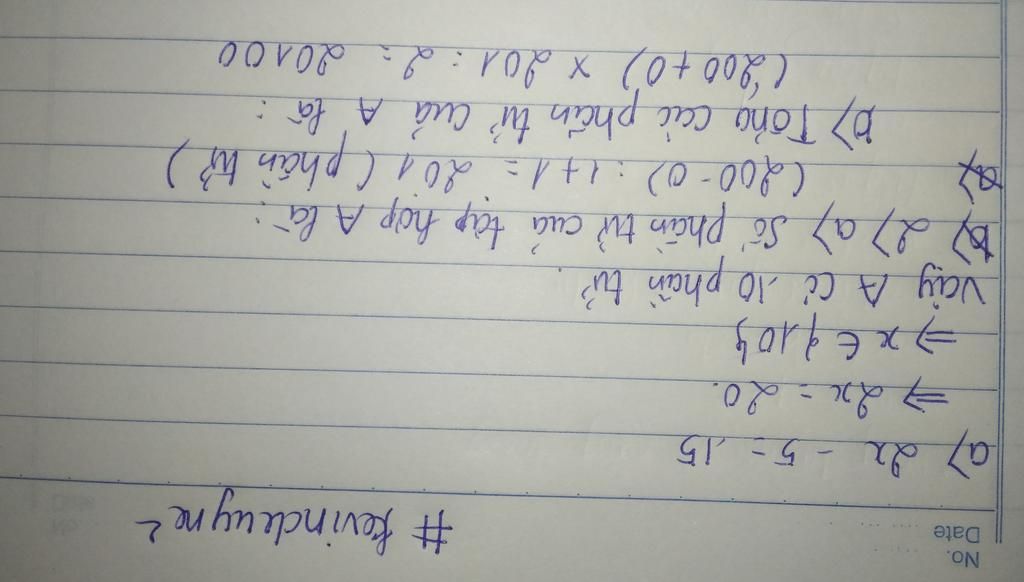 No.
Date
# kevindeuyne2
a) 2x - 5 = 15
=> 2x = 20.
=> x ∈ {10}
Vậy A có 10 phần tử.
b) 2) a) Số phần tử của tập hợp A là:
a) (200-0) : 1 + 1 = 201 (phần tử)
b) Tổng các phần tử của A là:
(200+0) x 201 : 2 = 20100